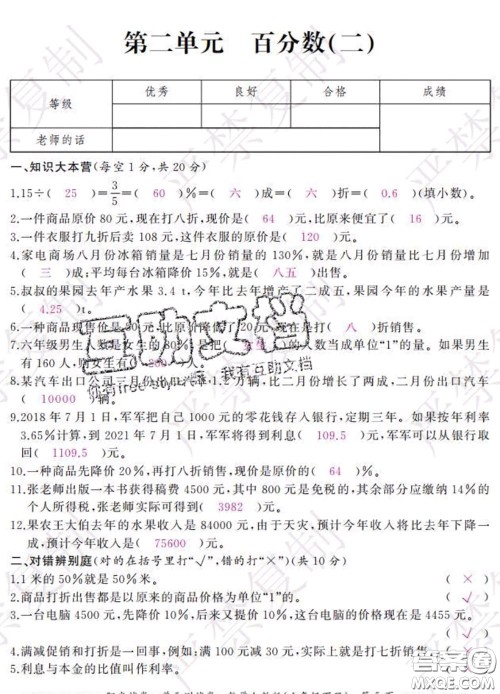 第二单元　百分数(二)
等级 优秀 良好 合格 成绩
老师的话
一、知识大本营(每空1分,共20分)
1.15÷( 25 )=3/5=( 60 )%=( 六 )成=( 六 )折=( 0.6 )(填小数)。
2.一件商品原价80元,现在打八折,现价是( 64 )元,比原来便宜了( 16 )元。
3.一件衣服打九折后卖108元,这件衣服的原价是( 120 )元。
4.家电商场八月份冰箱销量是七月份销量的130%,就是八月份销量比七月份增加
( 三 )成;平均每台冰箱降价15%,就是( 八五 )出售。
5.叔叔的果园去年产水果3.4 t,今年比去年增产了二成五,果园今年的水果产量是
( 4.25 )t。
6.一种商品现售价是80元,比原价降低了20元,现在是打( 八 )折销售。
7.六年级男生人数是女生的80%,是把( 女生 )的人数当成单位"1"的量。如果男生
有160人,则女生有( 200 )人。
8.某汽车出口公司三月份出口汽车1.2万辆,比二月份增长了两成,二月份出口汽车
( 10000 )辆。
9.2018年7月1日,军军把自己1000元的零花钱存入银行,定期三年。如果按年利率
3.65%计算,到2021年7月1日,军军将得到利息( 109.5 )元,军军可以从银行取
回( 1109.5 )元。
10.一种商品先降价20%,再打八折销售,现价是原价的( 64 )%。
11.张老师出版一本书获得稿费4500元,其中800元是免税的,其余部分应缴纳14%的
个人所得税,张老师实际可得到( 3982 )元。
12.果农王大伯去年的水果收入是84000元,由于灾害,预计今年收入将比去年下降一
成,预计今年收入是( 75600 )元。
二、对错辨别庭(对的在括号里打"√",错的打"×")(共10分)
1.1米的50%就是50%米。 ( × )
2.商品打折出售都是以原来的商品价格为单位"1"的。 ( √ )
3.一台电脑4500元,先降价10%,后来又提价10%,这台电脑的价格现在是4455元。
( √ )
4.满减促销和打折是一回事,例如:满100元减30元,实际上就是打七折销售。 ( × )
5.利息与本金的比值叫作利率。 ( × )
严禁复制
互助文档
我有互助文档
答案圈
MXQE.COM